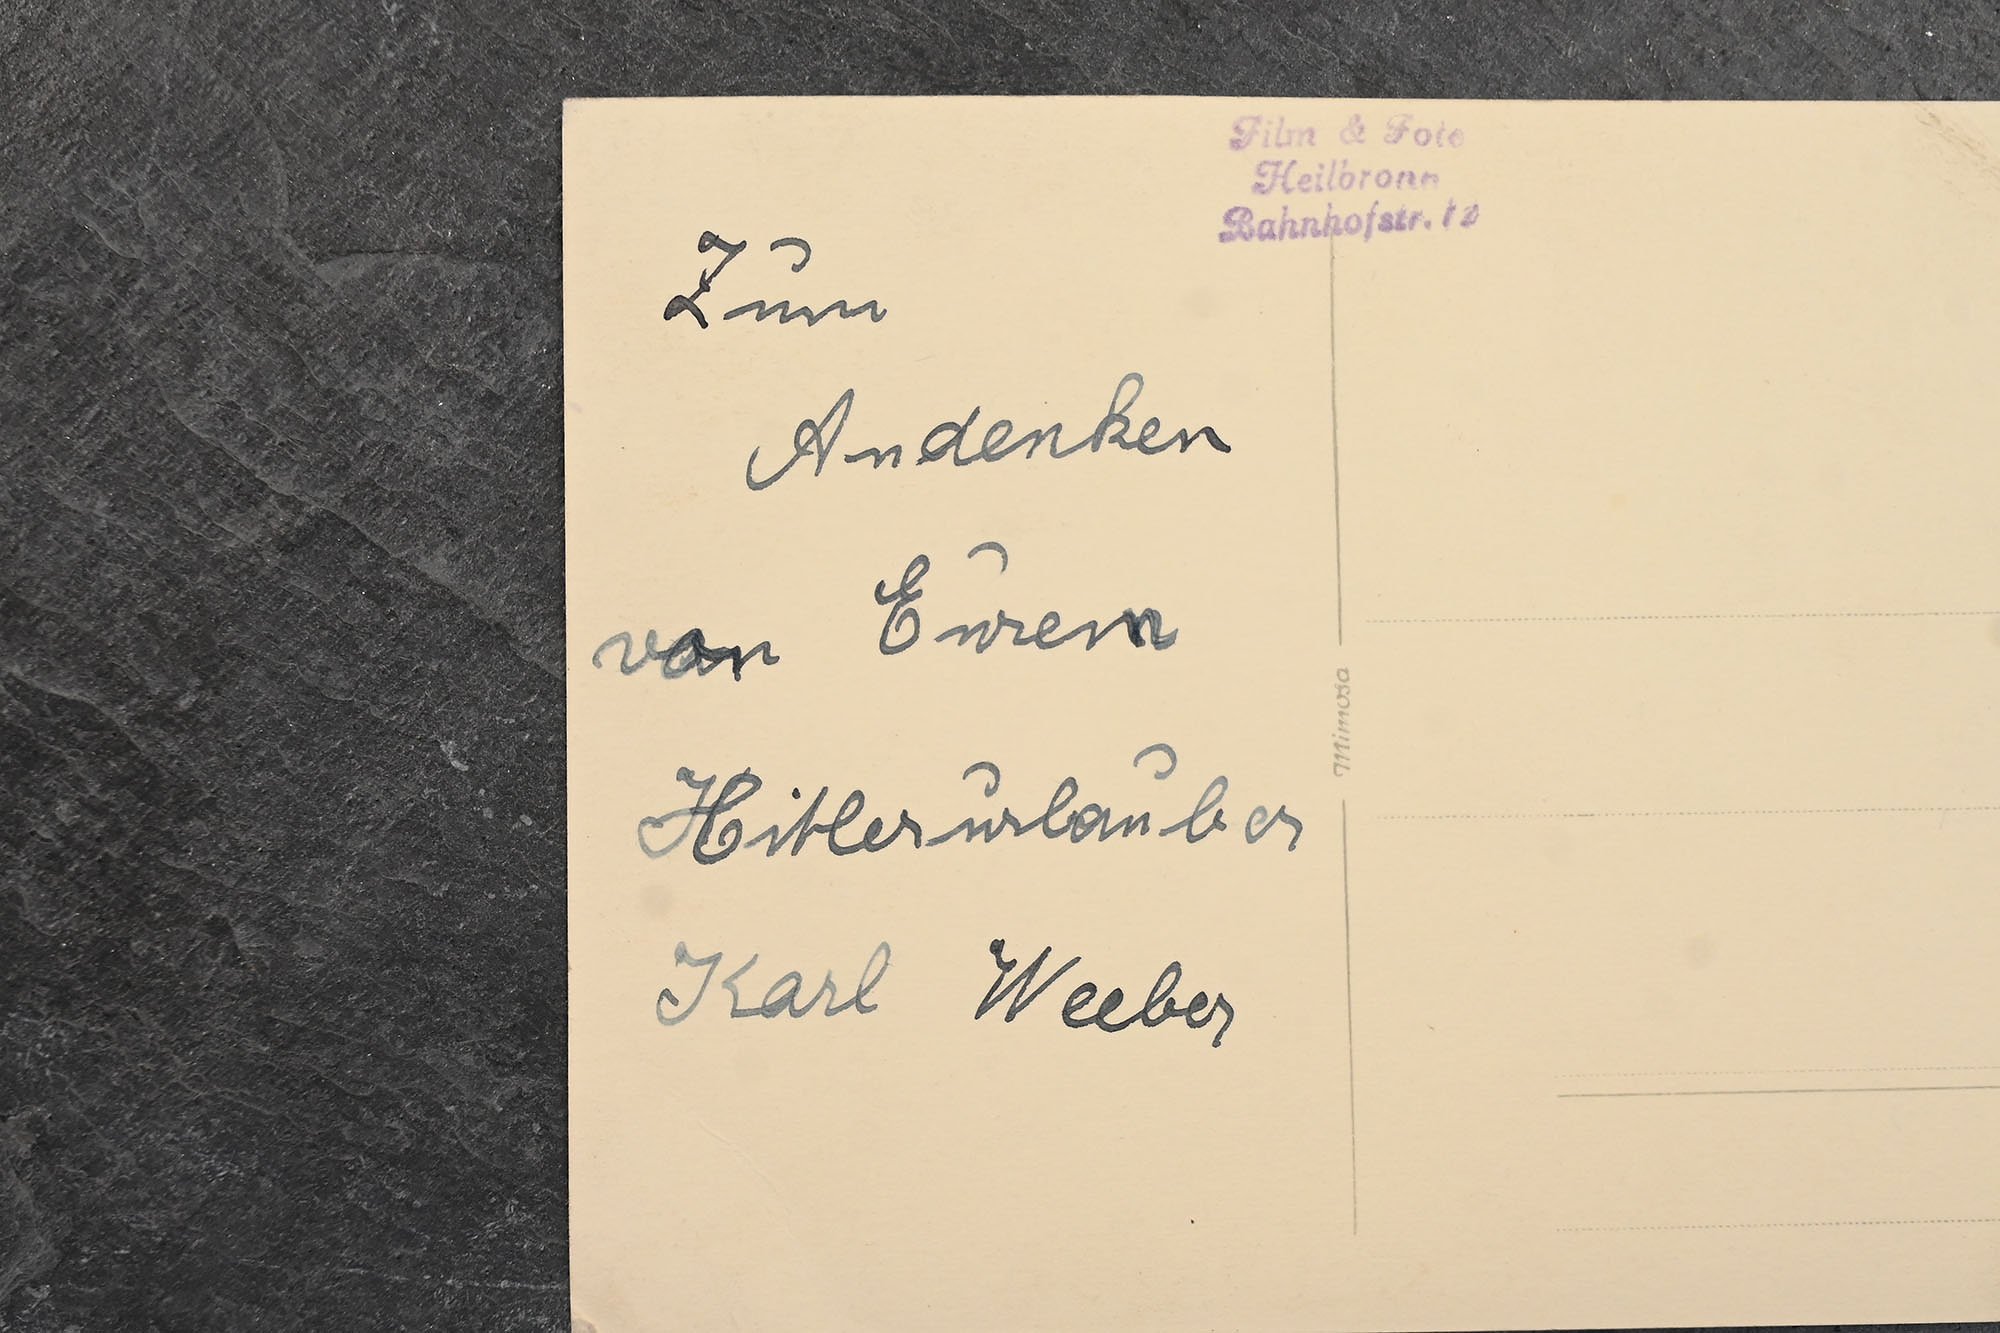 Film & Foto
Heilbronn
Bahnhofstr. 12
Zum
Andenken
von Eurem
Hitlerurlauber
Karl Weeber
Mimosa